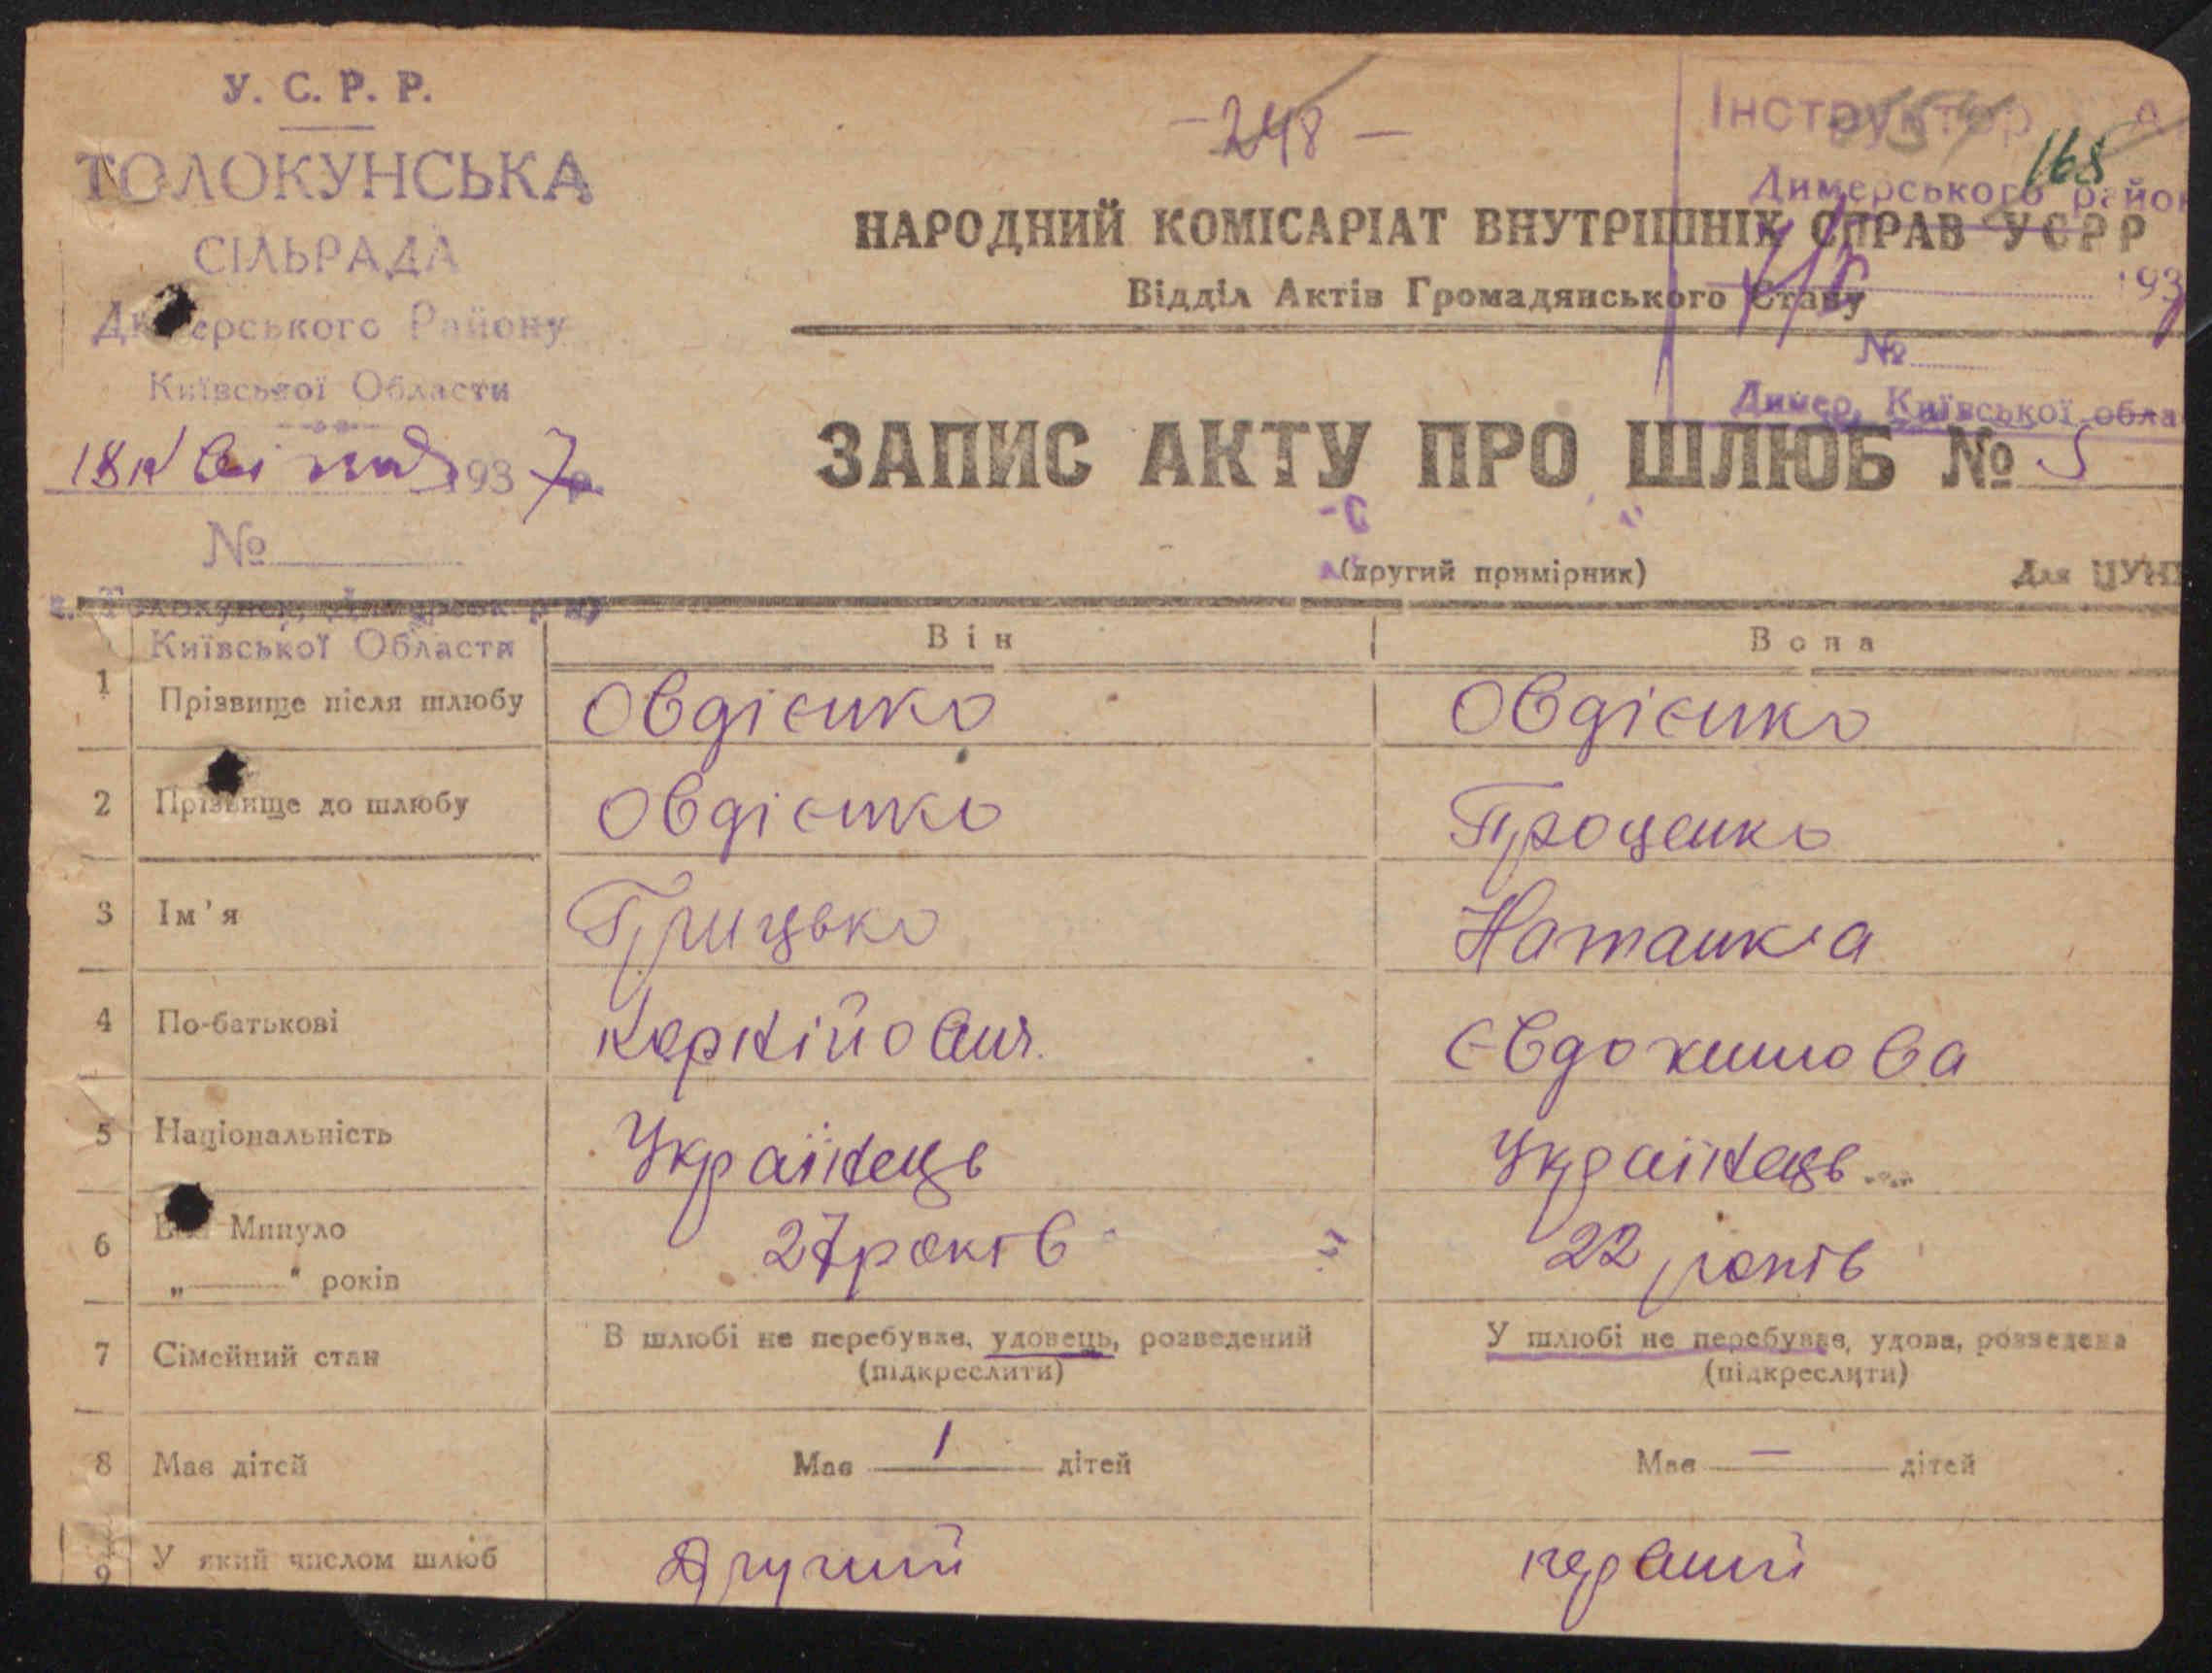 У. С. Р. Р.
ТОЛОКУНСЬКА
СІЛЬРАДА
Димерського Району
Київської Области
18 квітня 1937 р.
№
с. Толокунск, Димерськ. р-ну
Київської Области
- 248 -
Інструктор
168
Димерського район
193
№
Димер, Київської обла
НАРОДНИЙ КОМІСАРІАТ ВНУТРІШНІХ СПРАВ УСРР
Відділ Актів Громадянського Стану
ЗАПИС АКТУ ПРО ШЛЮБ № 5
(другий примірник)
Для ЦУН
Він Вона
1 Прізвище після шлюбу Овдієнко Овдієнко
2 Прізвище до шлюбу Овдієнко Проценко
3 Ім'я Грицько Наталка
4 По-батькові Корнійович. Євдокимова
5 Національність Українець Українець
6 Минуло 27 років 22 років
„ “ років
7 Сімейний стан В шлюбі не перебував, удовець, розведений У шлюбі не перебував, удова, розведена
(підкреслити) (підкреслити)
8 Має дітей Має 1 дітей Має — дітей
9 У який числом шлюб Другий перший